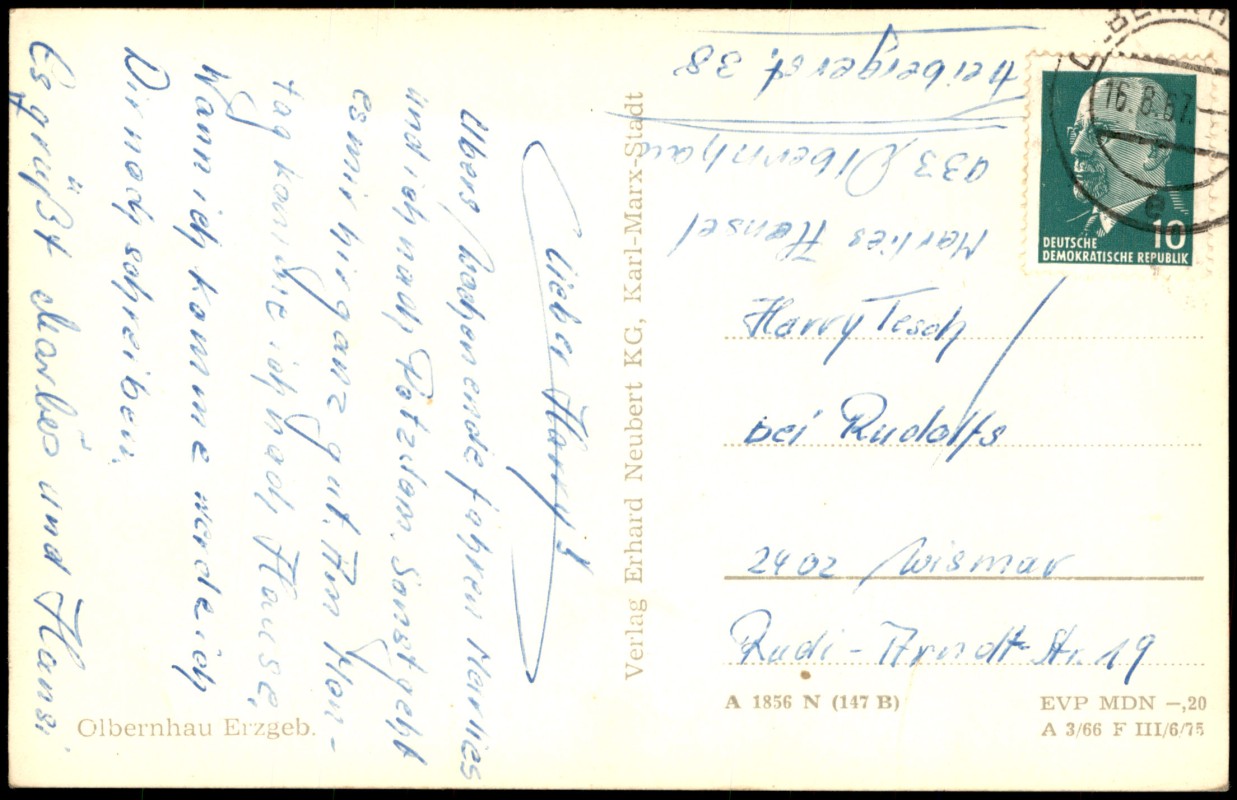 Lieber Harry!
Übers Wochenende fahren Marlies
und ich nach Potzdam. Sonst geht
es mir hir ganz gut. Am Mon-
tag komme ich nach Hause,
Wann ich komme werde ich
Dir noch schreiben.
Es grüßt Marlies und Hansi
Olbernhau Erzgeb.
Verlag Erhard Neubert KG, Karl-Marx-Stadt
Marlies Hensel
933 Olbernhau
Freibergerst. 38
16.8.67
e
10
DEUTSCHE
DEMOKRATISCHE REPUBLIK
Harry Tesch
bei Rudolfs
2402 Wismar
Rudi-Arndt-Str. 19
A 1856 N (147 B)
EVP MDN –,20
A 3/66 F III/6/75